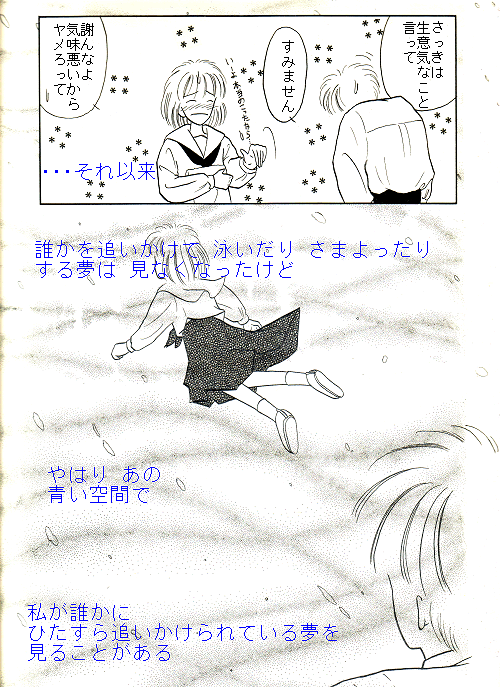 さっきは
生意気なこと
言って
すみません
謝んなよ
気味悪いから
ヤメろって
・・・それ以来
誰かを追いかけて 泳いだり さまよったり
する夢は 見なくなったけど
やはり あの
青い空間で
私が誰かに
ひたすら追いかけられている夢を
見ることがある